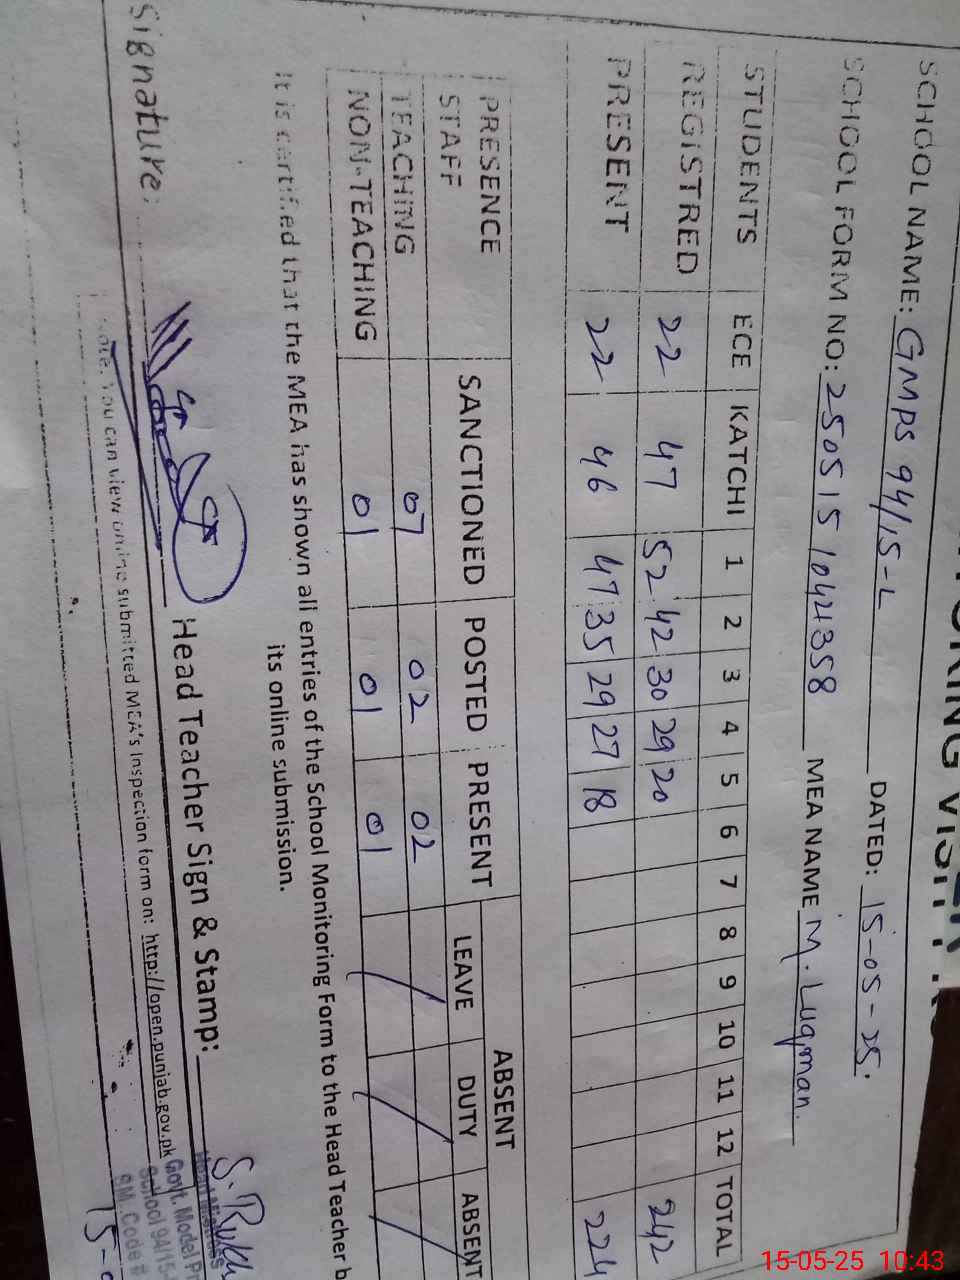 SCHOOL NAME: GMPS 94/15-L DATED: 15-05-25.
SCHOOL FORM NO: 250515 1042358 MEA NAME M. Luqman.
STUDENTS ECE KATCHI 1 2 3 4 5 6 7 8 9 10 11 12 TOTAL
REGISTRED 22 47 52 42 30 29 20 242
PRESENT 22 46 47 35 29 27 18 224
PRESENCE SANCTIONED POSTED PRESENT ABSENT
STAFF LEAVE DUTY ABSENT
TEACHING 07 02 02 /
NON-TEACHING 01 01 01 /
It is certified that the MEA has shown all entries of the School Monitoring Form to the Head Teacher b
its online submission.
Signature: Head Teacher Sign & Stamp:
Note: You can view online submitted MEA's Inspection form on: http://open.punjab.gov.pk
Head Mistress
Govt. Model Pr
School 94/15-
SM. Code #
15-05-25 10:43